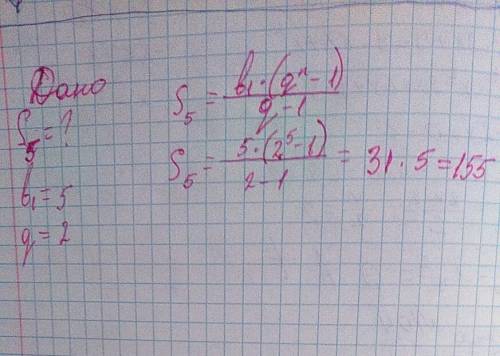 Дано
S₅ = ?
b₁ = 5
q = 2
S₅ = b₁·(qⁿ-1) / q-1
S₅ = 5·(2⁵-1) / 2-1 = 31·5 = 155